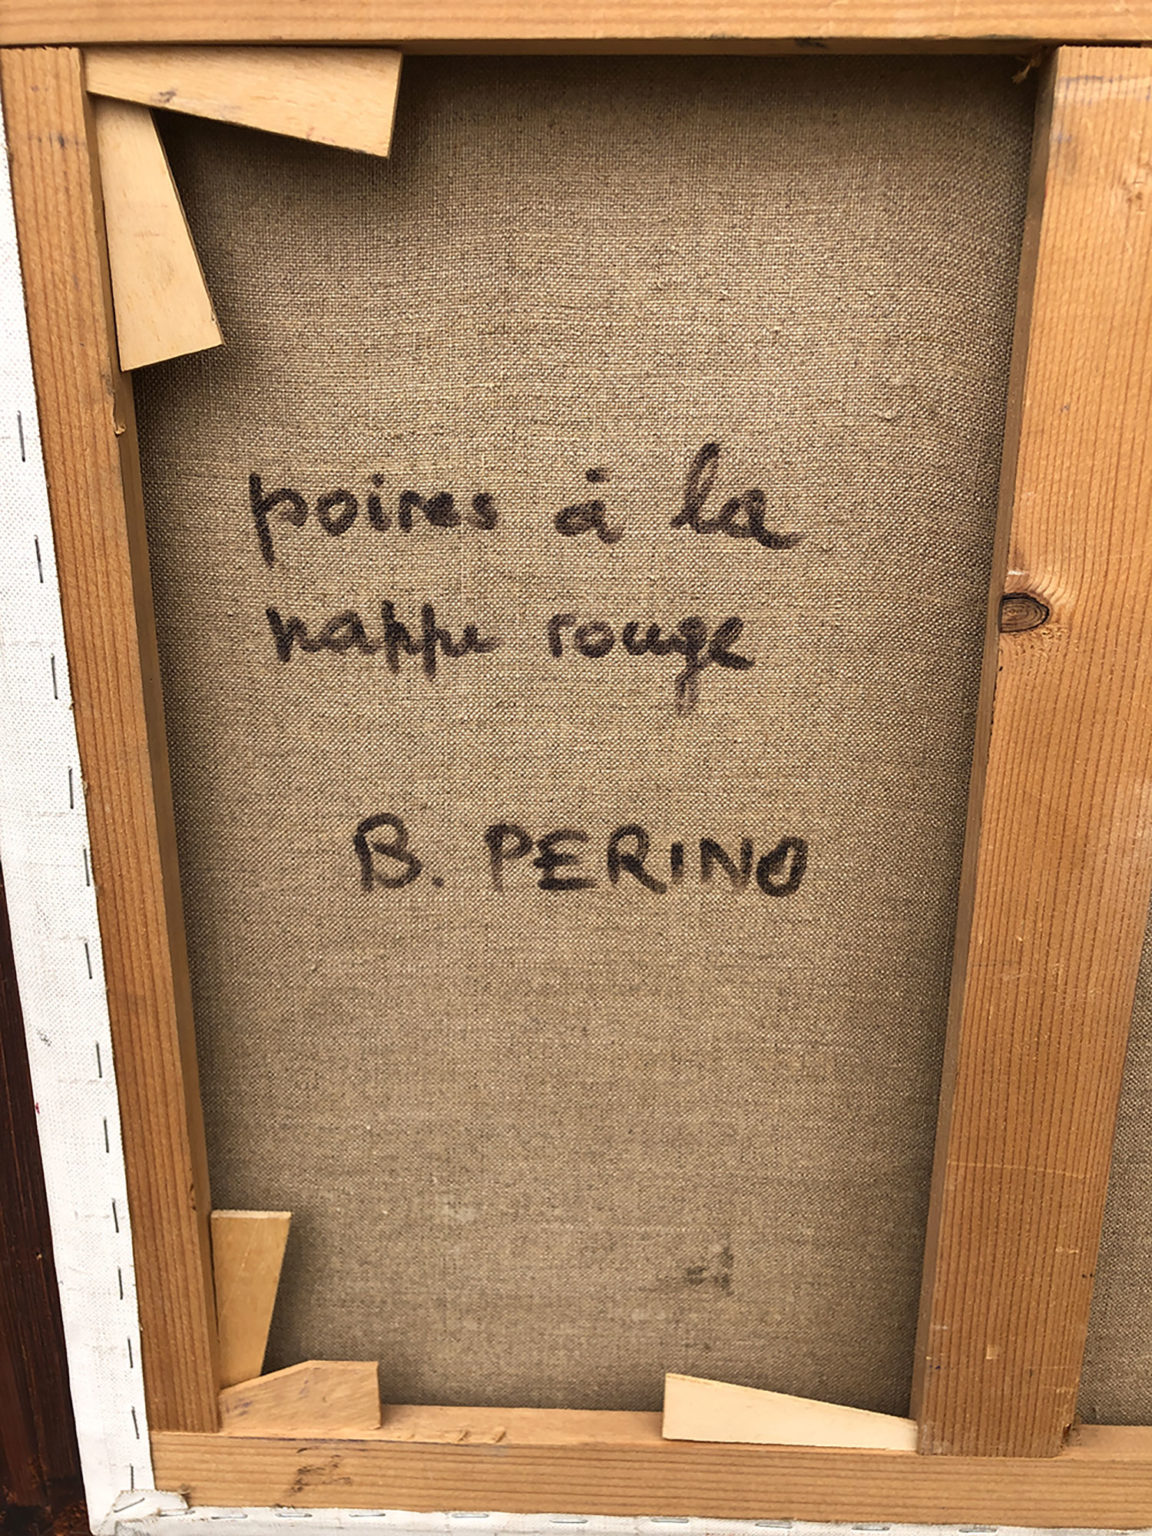 poires à la
nappe rouge
B. PERINO